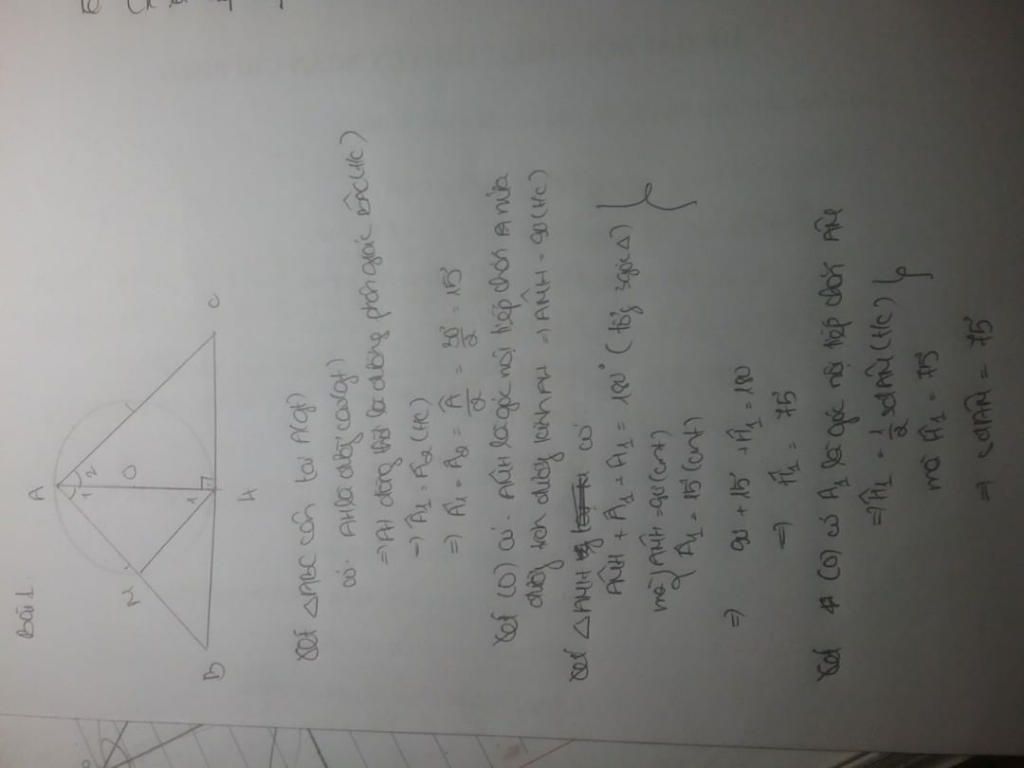 Bài 1.
A
1 2
N
O
1
B
H
C
Xét △ABC cân tại A(gt)
có: AH là đường cao(gt)
⇒ AH đồng thời là đường phân giác BÂC(t/c)
⇒ Â₁ = Â₂ (t/c)
⇒ Â₁ = Â₂ = Â/2 = 30°/2 = 15°
Xét (O) có: AN̂H là góc nội tiếp chắn nửa
đường tròn đường kính AH ⇒ AN̂H = 90 (t/c)
Xét △ANH có
AN̂H + Â₁ + Ĥ₁ = 180° (tổng 3 góc △)
mà AN̂H = 90 (cmt)
Â₁ = 15° (cmt)
⇒ 90 + 15° + Ĥ₁ = 180
⇒ Ĥ₁ = 75
Xét (O) có Ĥ₁ là góc nội tiếp chắn AN
⇒ Ĥ₁ = 1/2 sđ AN (t/c)
mà Ĥ₁ = 75°
⇒ sđ AN = 75°